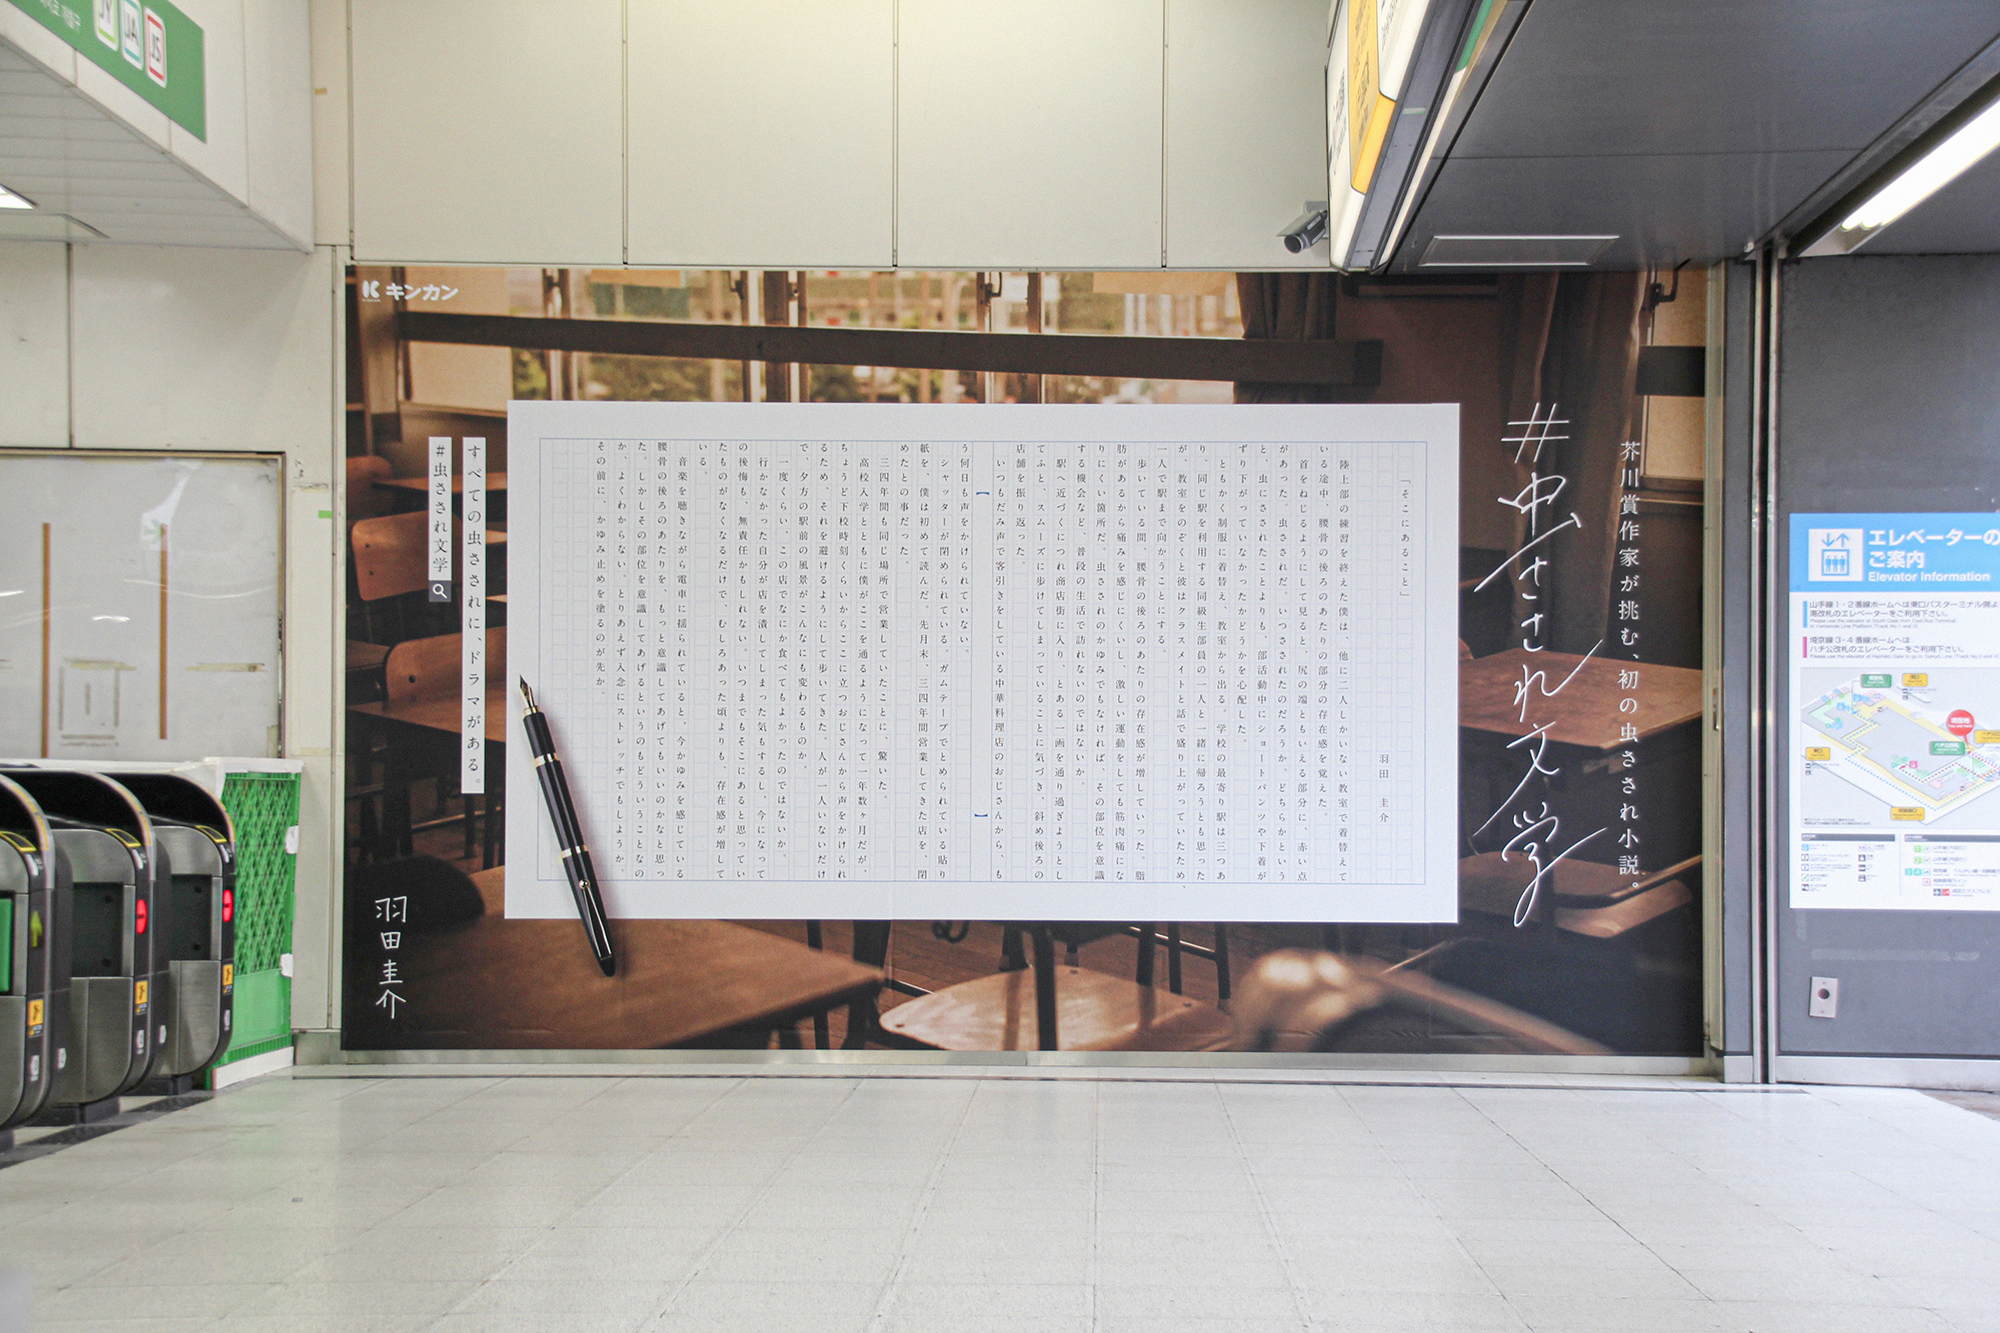 キンカン
芥川賞作家が挑む、初の虫さされ小説。
#虫さされ文学
「そこにあること」
羽田 圭介
陸上部の練習を終えた僕は、他に二人しかいない教室で着替えて
いる途中、腰骨の後ろのあたりの部分の存在感を覚えた。
首をねじるようにして見ると、尻の端ともいえる部分に、赤い点
があった。虫さされだ。いつさされたのだろうか。どちらかという
と、虫にさされたことよりも、部活動中にショートパンツや下着が
ずり下がっていなかったかどうかを心配した。
ともかく制服に着替え、教室から出る。学校の最寄り駅は三つあ
り、同じ駅を利用する同級生部員の一人と一緒に帰ろうとも思った
が、教室をのぞくと彼はクラスメイトと話で盛り上がっていたため、
一人で駅まで向かうことにする。
歩いている間、腰骨の後ろのあたりの存在感が増していった。脂
肪があるから痛みを感じにくいし、激しい運動をしても筋肉痛にな
りにくい箇所だ。虫さされのかゆみでもなければ、その部位を意識
する機会など、普段の生活で訪れないのではないか。
駅へ近づくにつれ商店街に入り、とある一画を通り過ぎようとし
てふと、スムーズに歩けてしまっていることに気づき、斜め後ろの
店舗を振り返った。
いつもだみ声で客引きをしている中華料理店のおじさんから、も
う何日も声をかけられていない。
シャッターが閉められている。ガムテープでとめられている貼り
紙を、僕は初めて読んだ。先月末、三四年間営業してきた店を、閉
めたとの事だった。
三四年間も同じ場所で営業していたことに、驚いた。
高校入学とともに僕がここを通るようになって一年数ヶ月だが、
ちょうど下校時刻くらいからここに立つおじさんから声をかけられ
るため、それを避けるようにして歩いてきた。人が一人いないだけ
で、夕方の駅前の風景がこんなにも変わるものか。
一度くらい、この店でなにか食べてもよかったのではないか。
行かなかった自分が店を潰してしまった気もするし、今になって
の後悔も、無責任かもしれない。いつまでもそこにあると思ってい
たものがなくなるだけで、むしろあった頃よりも、存在感が増して
いる。
音楽を聴きながら電車に揺られていると、今かゆみを感じている
腰骨の後ろのあたりを、もっと意識してあげてもいいのかなと思っ
た。しかしその部位を意識してあげるというのもどういうことなの
か、よくわからない。とりあえず入念にストレッチでもしようか。
その前に、かゆみ止めを塗るのが先か。
すべての虫さされに、ドラマがある。
#虫さされ文学
羽田圭介
JY JA JS
エレベーターの
ご案内
Elevator Information
山手線1・2番線ホームへは東口バスターミナル側
南改札のエレベーターをご利用下さい。
埼京線3・4番線ホームへは
ハチ公改札のエレベーターをご利用下さい。
現在地